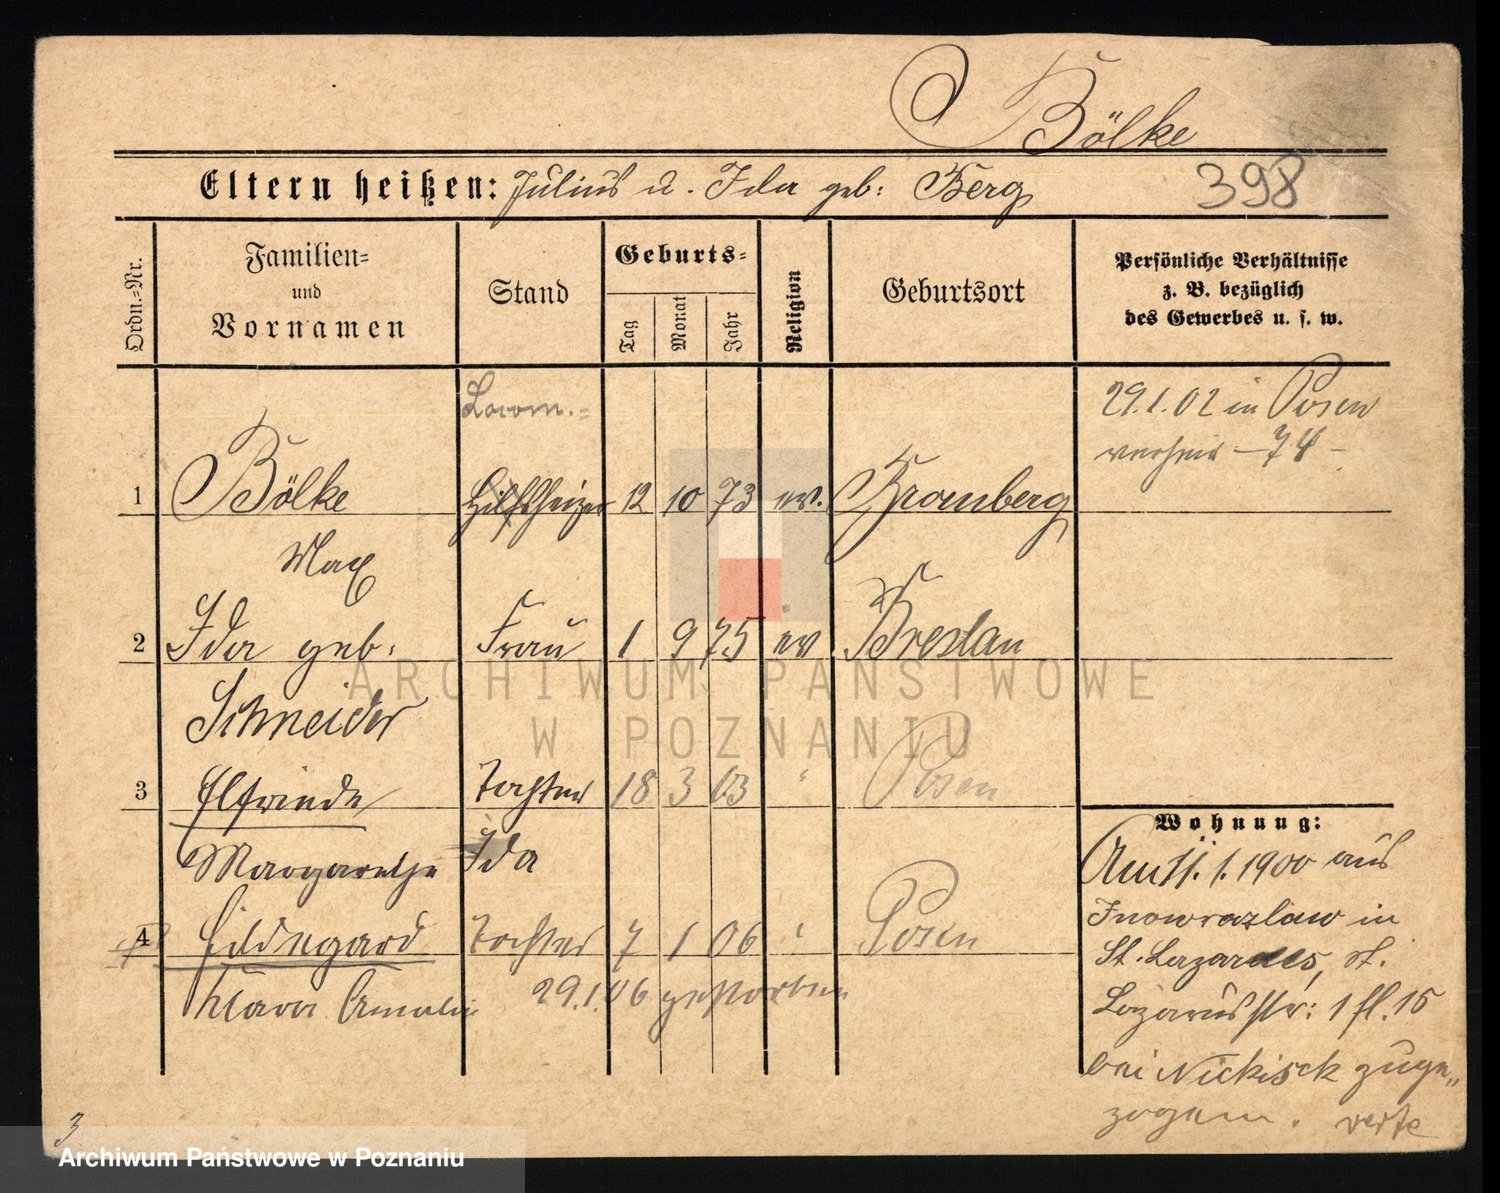 Bölke
Eltern heißen: Julius u. Ida geb: Berg
398
Ordn.-Nr.
Familien-
und
Vornamen
Stand
Geburts-
Tag
Monat
Jahr
Religion
Geburtsort
Persönliche Verhältnisse
z. B. bezüglich
des Gewerbes u. s. w.
Locom.-
29.1.02 in Posen
verheir - 74 -
1 Bölke Hilfsheizer 12 10 73 ev. Bromberg
Max
2 Ida geb. Frau 1 9 75 ev Breslau
Schneider
3 Elfriede Tochter 18 3 03 " Posen
Margarethe Ida
4 Hildegard Tochter 7 1 06 " Posen
Klara Amalie 29.1.06 gestorben
Wohnung:
Am 11.1.1900 aus
Inowrazlaw in
St. Lazarus, St.
Lazarusstr: 1 fl. 15
bei Nickisch zuge„
zogen. verte
3
ARCHIWUM PAŃSTWOWE
W POZNANIU
Archiwum Państwowe w Poznaniu